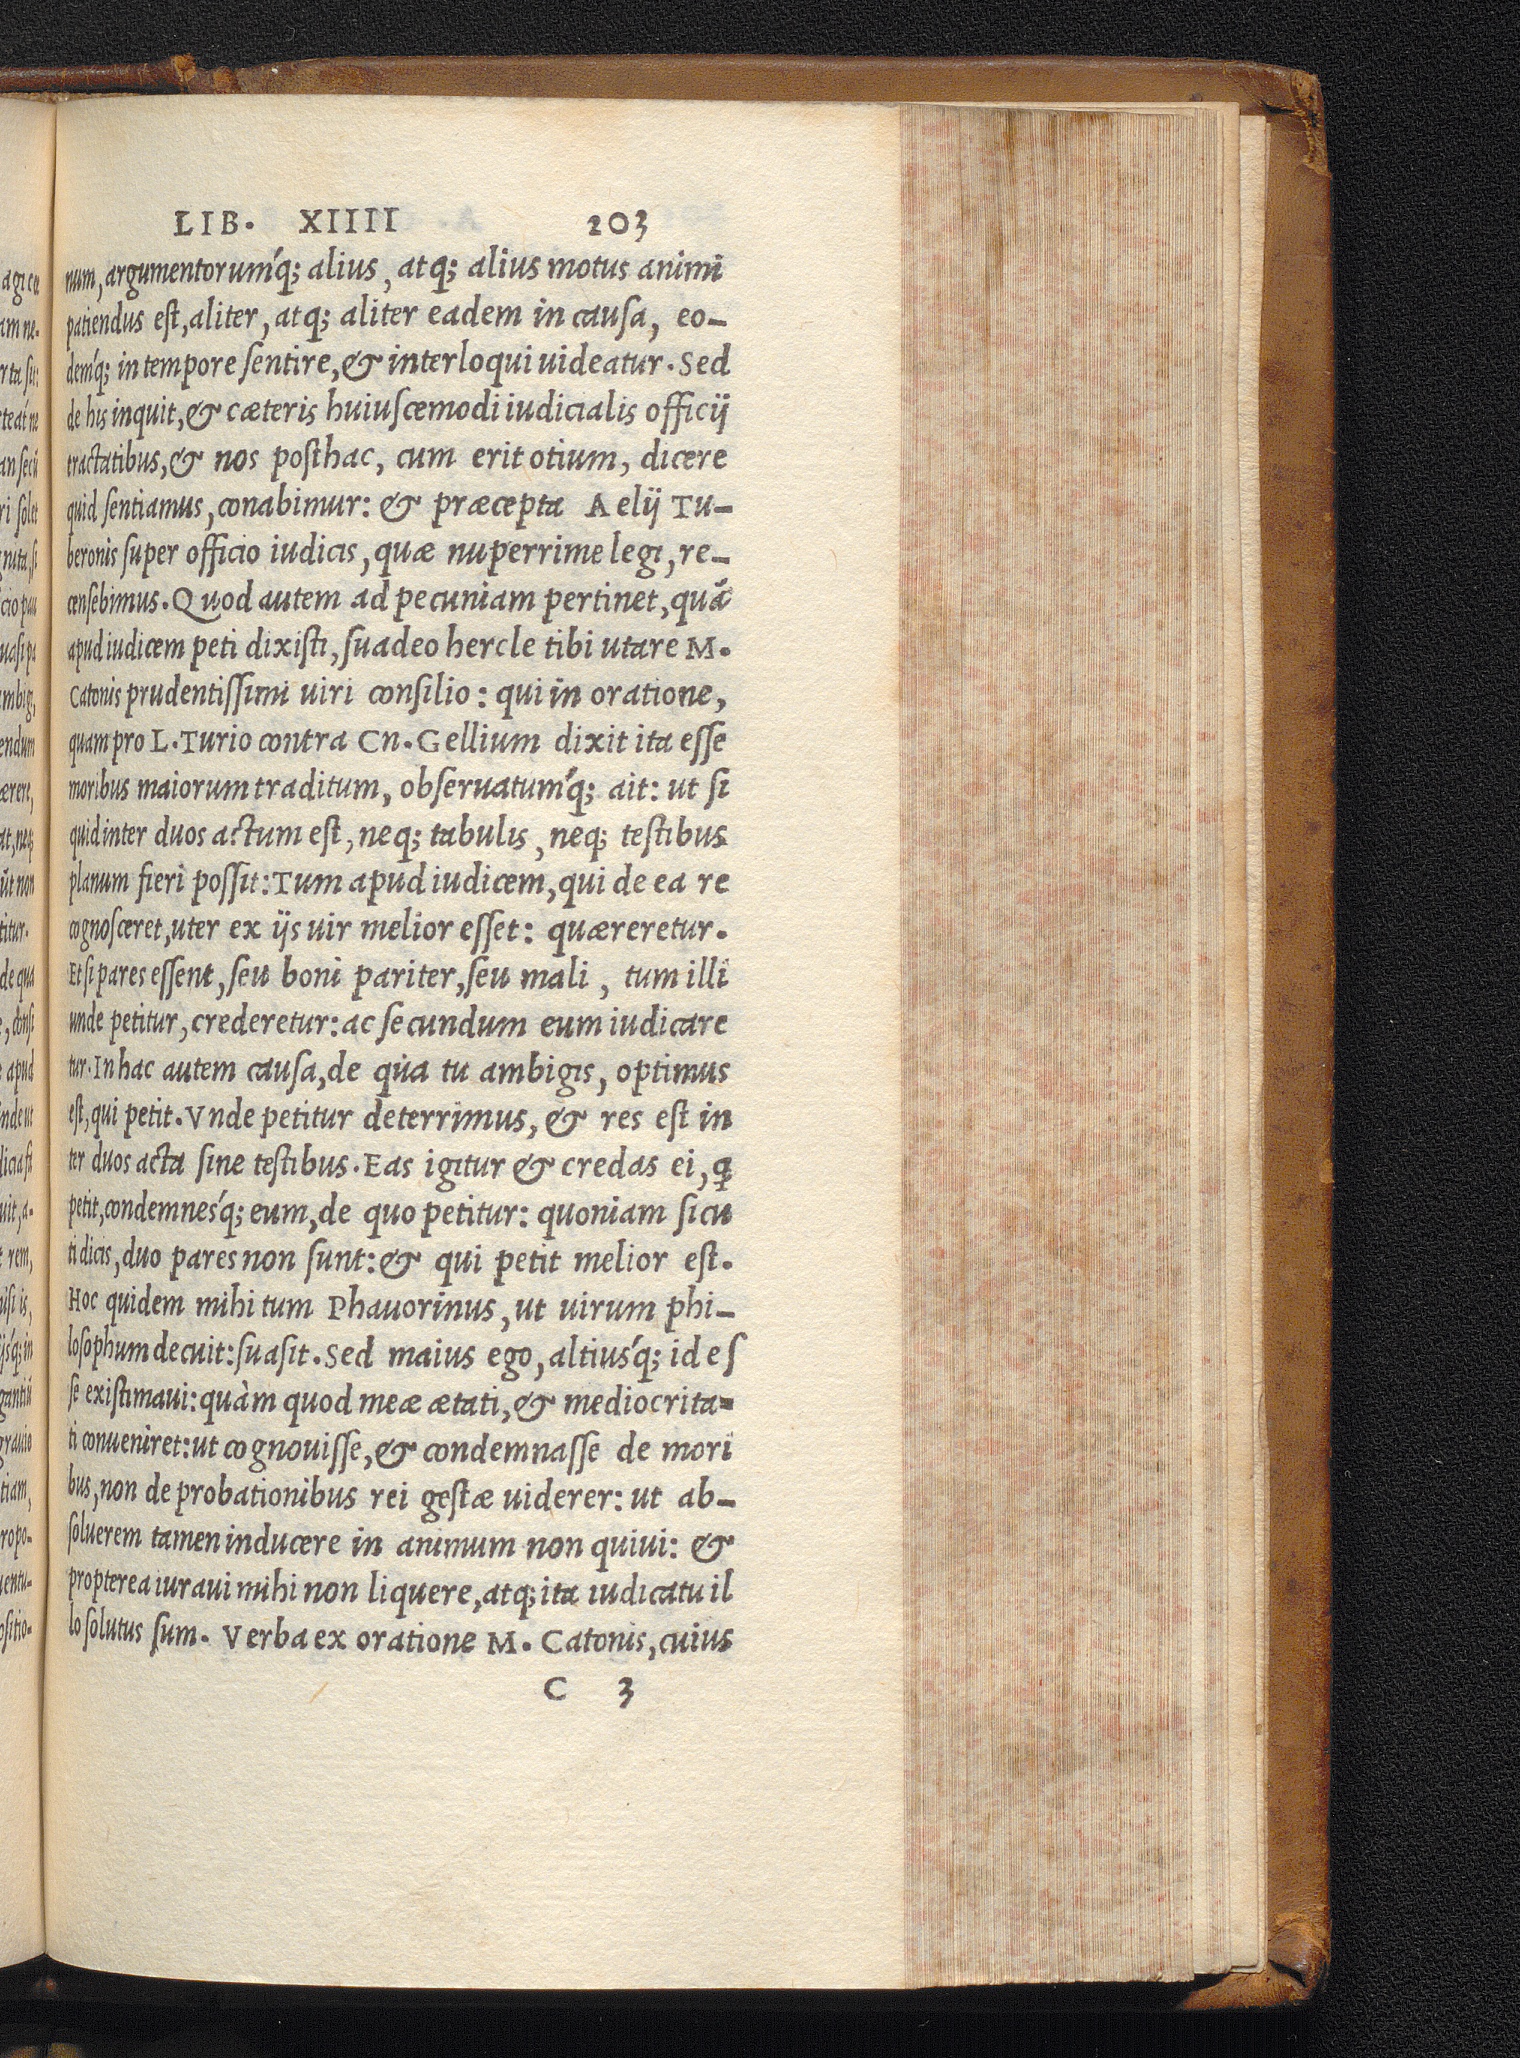 LIB. XIIII 203
num, argumentorumq́; alius, atq; alius motus animi
patiendus eſt, aliter, atq; aliter eadem in cauſa, eo-
demq́; in tempore ſentire, & interloqui uideatur. Sed
de his inquit, & cæteris huiuſcemodi iudicialis officij
tractatibus, & nos poſthac, cum erit otium, dicere
quid ſentiamus, conabimur: & præcepta Aelij Tu-
beronis ſuper officio iudicis, quæ nuperrime legi, re-
cenſebimus. Quod autem ad pecuniam pertinet, quā
apud iudicem peti dixiſti, ſuadeo hercle tibi utare M.
Catonis prudentiſſimi uiri conſilio: qui in oratione,
quam pro L. Turio contra Cn. Gellium dixit ita eſſe
moribus maiorum traditum, obſeruatumq́; ait: ut ſi
quid inter duos actum eſt, neq; tabulis, neq; teſtibus
planum fieri poſſit: Tum apud iudicem, qui de ea re
cognoſceret, uter ex ijs uir melior eſſet: quæreretur.
Et ſi pares eſſent, ſeu boni pariter, ſeu mali, tum illi
unde petitur, crederetur: ac ſecundum eum iudicare
tur. In hac autem cauſa, de qua tu ambigis, optimus
eſt, qui petit. Vnde petitur deterrimus, & res eſt in
ter duos acta ſine teſtibus. Eas igitur & credas ei, ꝗ
petit, condemnesq́; eum, de quo petitur: quoniam ſicu
ti dicis, duo pares non ſunt: & qui petit melior eſt.
Hoc quidem mihi tum Phauorinus, ut uirum phi-
loſophum decuit: ſuaſit. Sed maius ego, altiusq́; id eſ
ſe exiſtimaui: quàm quod meæ ætati, & mediocrita-
ti conueniret: ut cognouiſſe, & condemnaſſe de mori
bus, non de probationibus rei geſtæ uiderer: ut ab-
ſoluerem tamen inducere in animum non quiui: &
propterea iuraui mihi non liquere, atq; ita iudicatu il
lo ſolutus ſum. Verba ex oratione M. Catonis, cuius
C 3